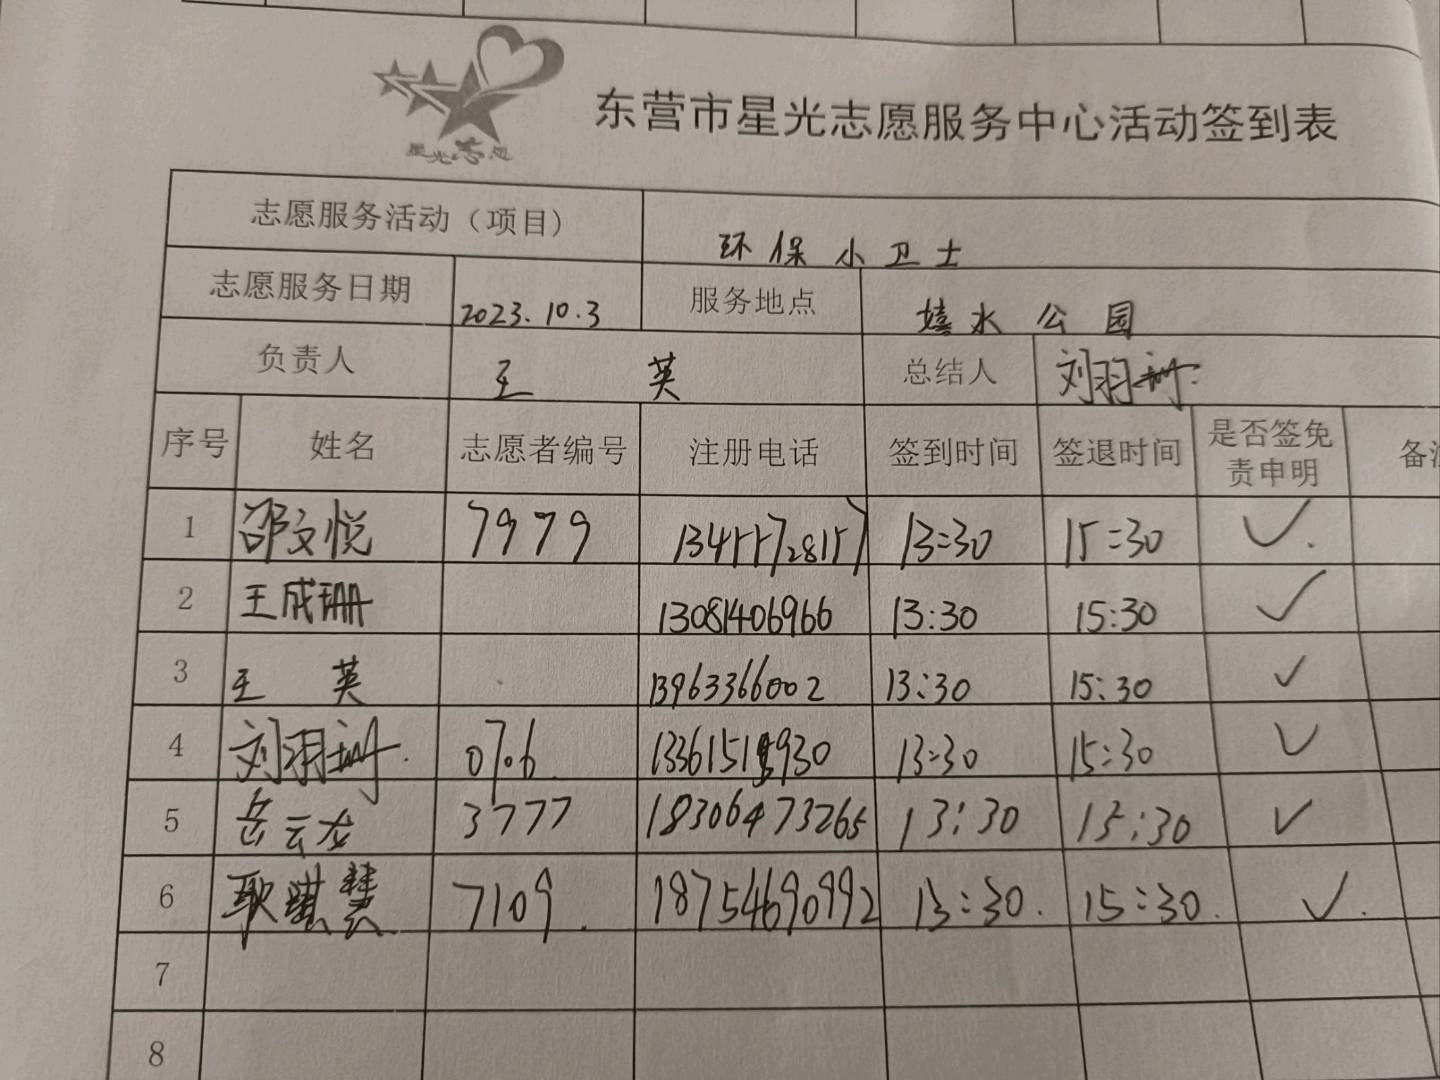 星光志愿
东营市星光志愿服务中心活动签到表
志愿服务活动（项目） 环保小卫士
志愿服务日期 2023.10.3 服务地点 嬉水公园
负责人 王 英 总结人 刘羽珊
序号 姓名 志愿者编号 注册电话 签到时间 签退时间 是否签免责申明 备注
1 邵文悦 7979 13455728157 13:30 15:30 ✓
2 王成珊 13081406966 13:30 15:30 ✓
3 王 英 13963366002 13:30 15:30 ✓
4 刘羽珊 0706 13:30 15:30 ✓
5 岳云龙 3777 18306473265 13:30 15:30 ✓
6 耿琪慧 7109 18754690992 13:30 15:30 ✓
7
8